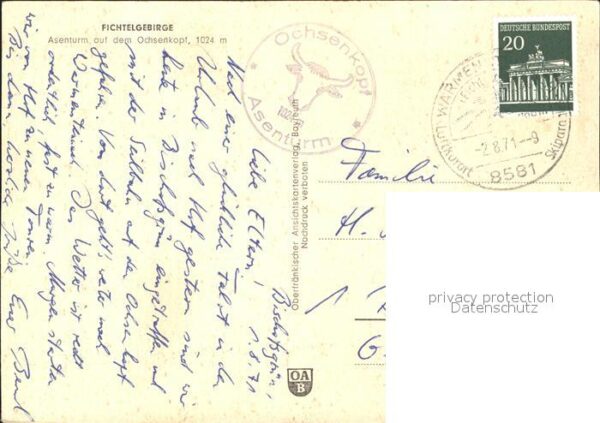 FICHTELGEBIRGE
Asenturm auf dem Ochsenkopf, 1024 m
Ochsenkopf
Asenturm
DEUTSCHE BUNDESPOST
20
WARMEN
Luftkurort
-2.8.71-9
8581
Oberfränkischer Ansichtskartenverlag, Bayreuth
Nachdruck verboten
OA
B
Bischofsgrün,
1.8.71
Liebe Eltern!
Nach einer glücklichen Fahrt in den
Urlaub nach Hof gestern sind wir
heute in Bischofsgrün eingetroffen und
mit der Seilbahn auf den Ochsenkopf
gefahren. Von dort geht's weiter nach
Warmensteinach. Das Wetter ist recht
ordentlich, fast zu warm. Morgen starten
wir von Hof zu unserer
Bis dann herzliche Grüße Euer
Familie
H.
1
G
privacy protection
Datenschutz